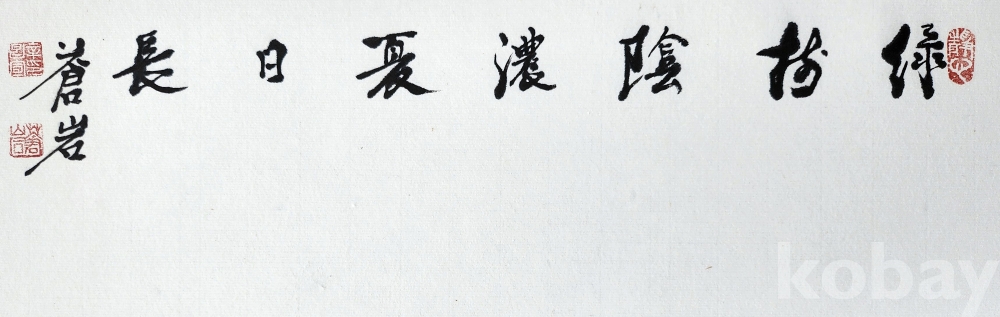 綠樹陰濃夏日長
蒼岩
kobay